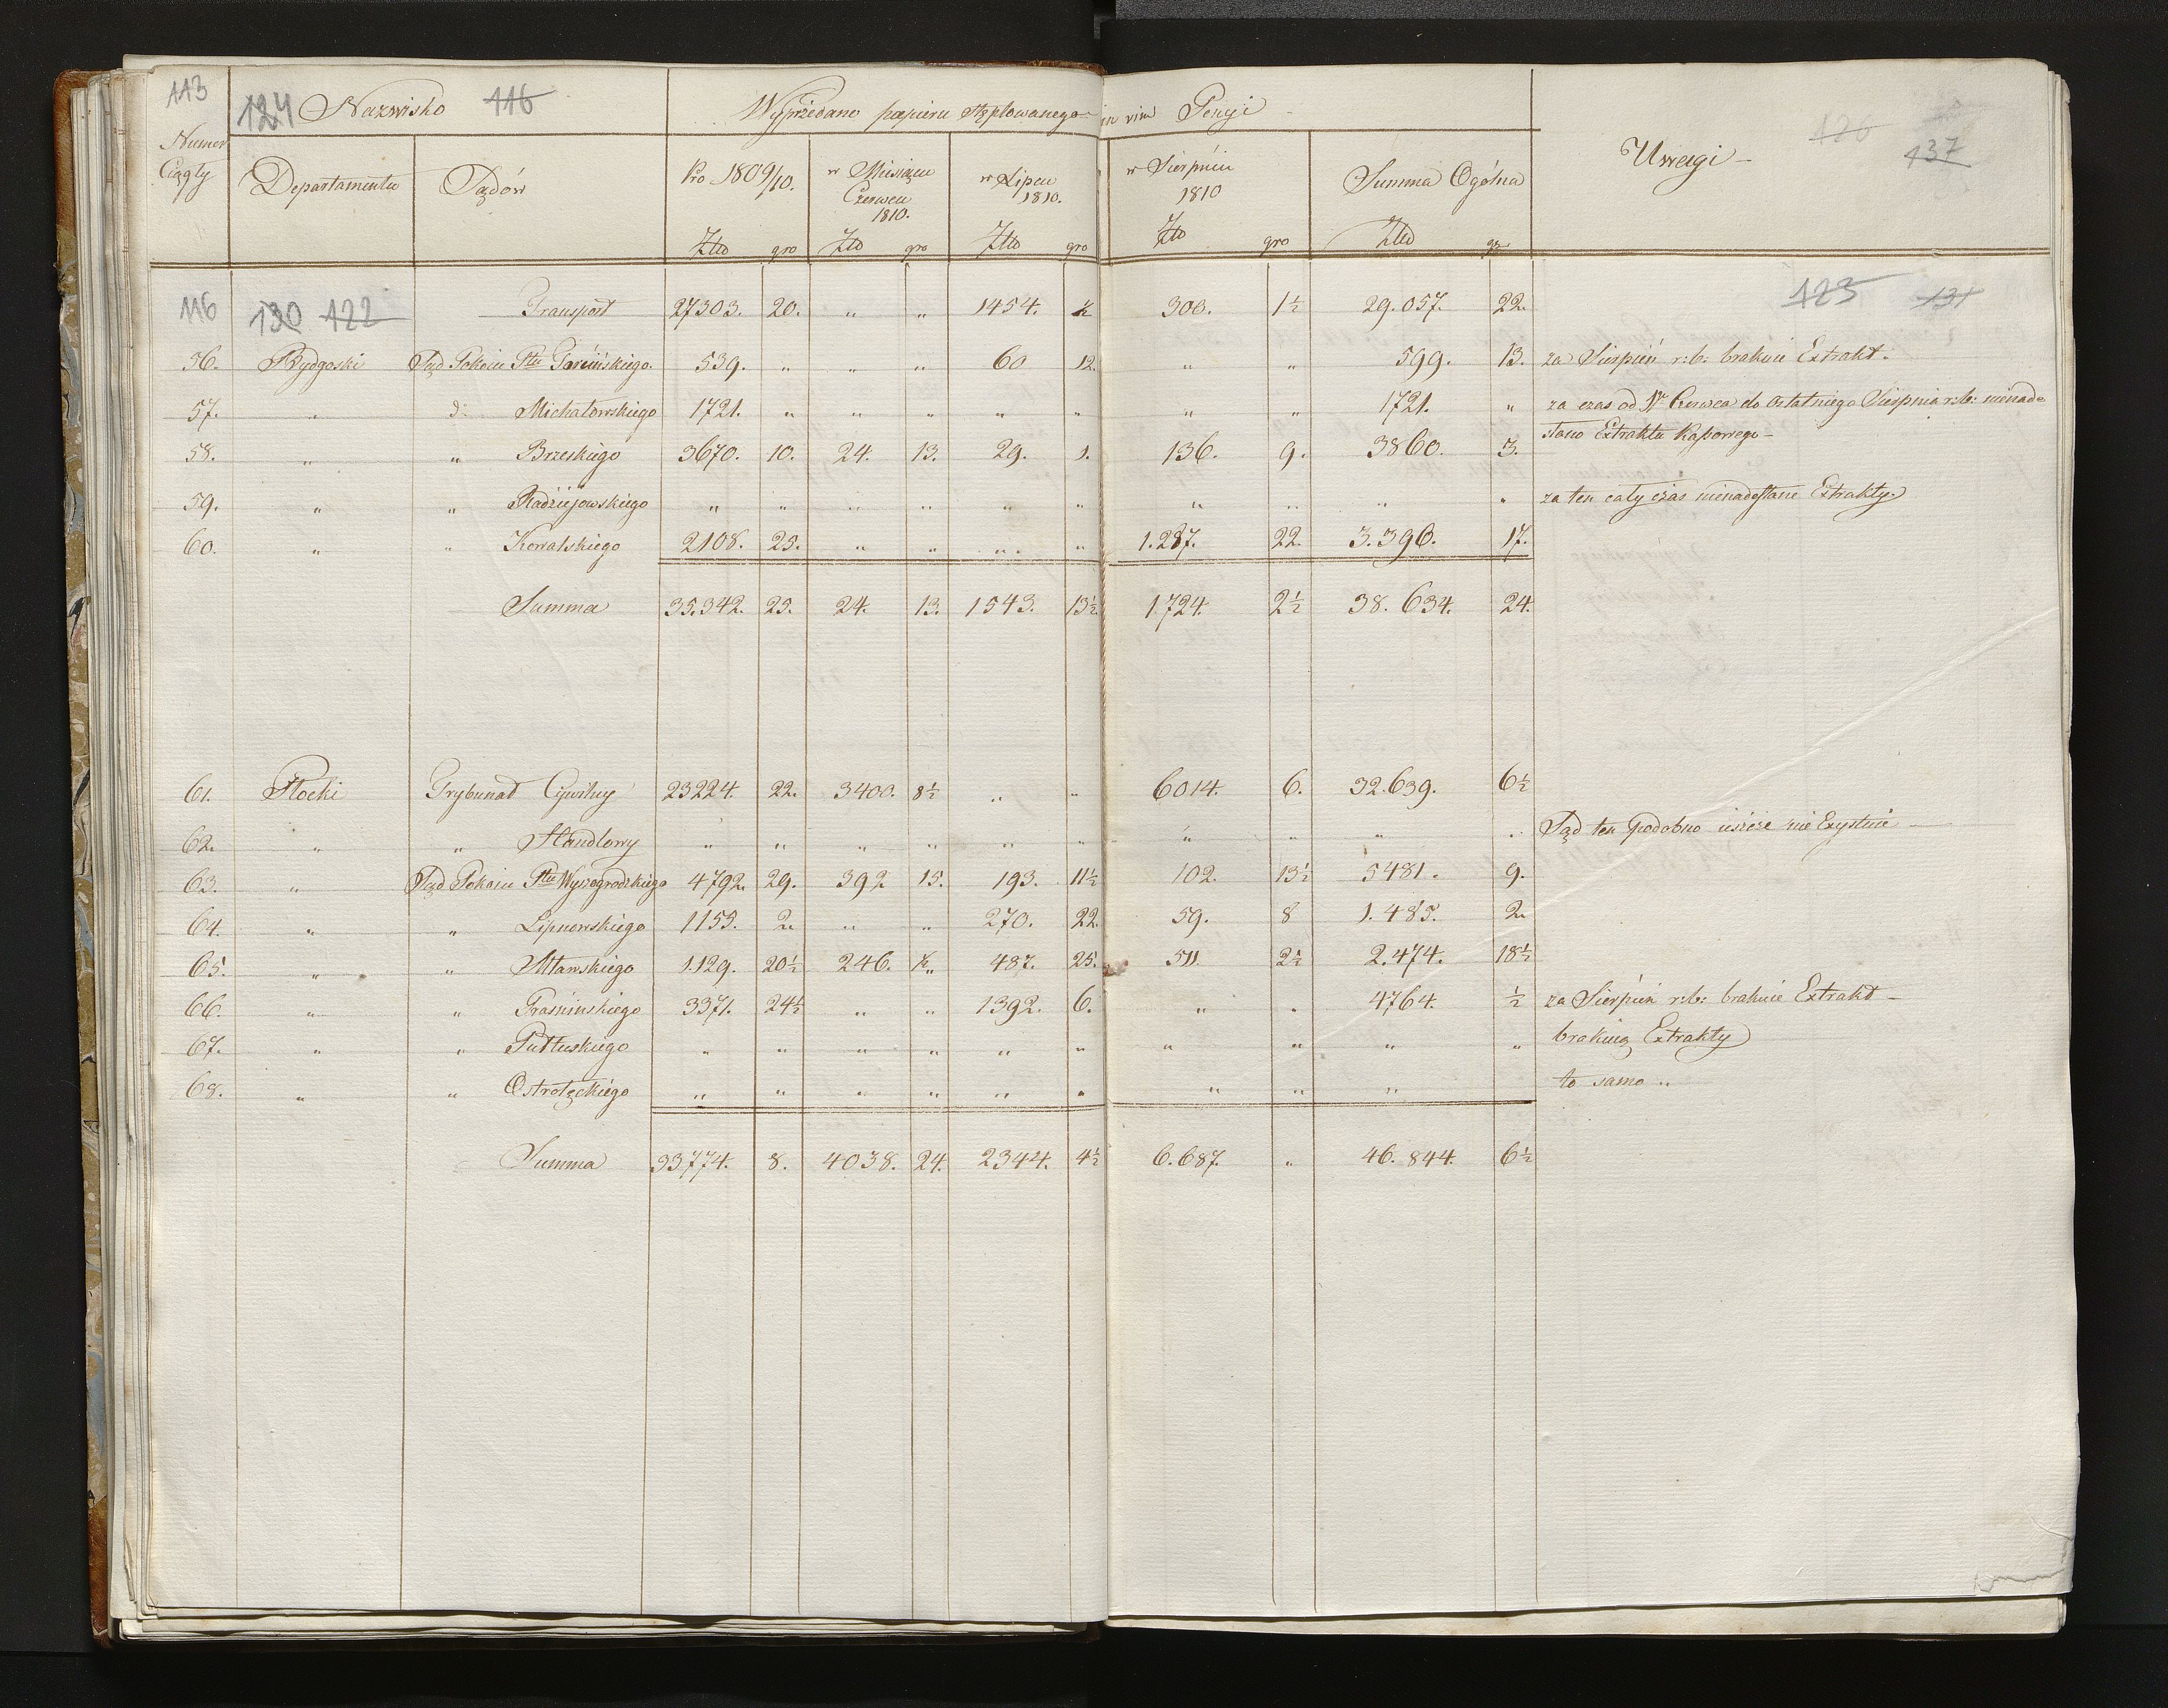 113
124 Nazwisko 116 Wyprzedano papieru stęplowanego in vim Pensyi
126 137
Numer Ciągły Departamentu Sądów Pro 1809/10. w Miesiącu Czerwcu 1810. w Lipcu 1810. w Sierpniu 1810 Summa Ogólna Uwagi
Złto gro Złto gro Złto gro Złto gro Złto gr
116 130 122 Transport 27303. 20. " " 1454. ½ 300. 1½ 29.057. 22. 123 131
56. Bydgoski Sąd Pokoiu Ptu 539. " " " 60 12. " " 599. 13. za Sierpień r:b: brakuie Extrakt.
57. " d: Michałowskiego 1721. " " " " " " " 1721. " za czas od 1go Czerwca do ostatniego Sierpnia r:b: nienade
słano Extraktu Kassowego
58. " " Brzeskiego 3670. 10. 24. 13. 29. 1. 136. 9. 3860. 3.
59. " " Radziejowskiego " " " " " " " " " " za ten cały czas nienadesłane Extrakty
60. " " Kowalskiego 2108. 25. " " " " 1.287. 22. 3.396. 17.
Summa 35.342. 25. 24. 13. 1543. 13½ 1.724. 2½ 38.634. 24.
61. Płocki Trybunał Cywilny 23224. 22. 3400. 8½ " " 6014. 6. 32.639. 6½
62. " " Handlowy " " " " " " " " " " Sąd ten podobno ieszcze nie Exystuie
63. " Sąd Pokoiu Ptu Wyszogrodzkiego 4792. 29. 392 15. 193. 11½ 102. 13½ 5481. 9.
64. " " Lipnowskiego 1155. 2. " " 270. 22. 59. 8 1.485. 2.
65. " " Mławskiego 1.129. 20½ 246. ½ 487. 25. 511. 2½ 2.474. 18½
66. " " Prasnińskiego 3371. 24½ " " 1392. 6. " " 4764. ½ za Sierpień r:b: brakuie Extrakt
67. " " Pułtuskiego " " " " " " " " " " brakuią Extrakty
68. " " Ostrołęckiego " " " " " " " " " to samo "
Summa 33774. 8. 4038. 24. 2344. 4½ 6.687. " 46.844. 6½